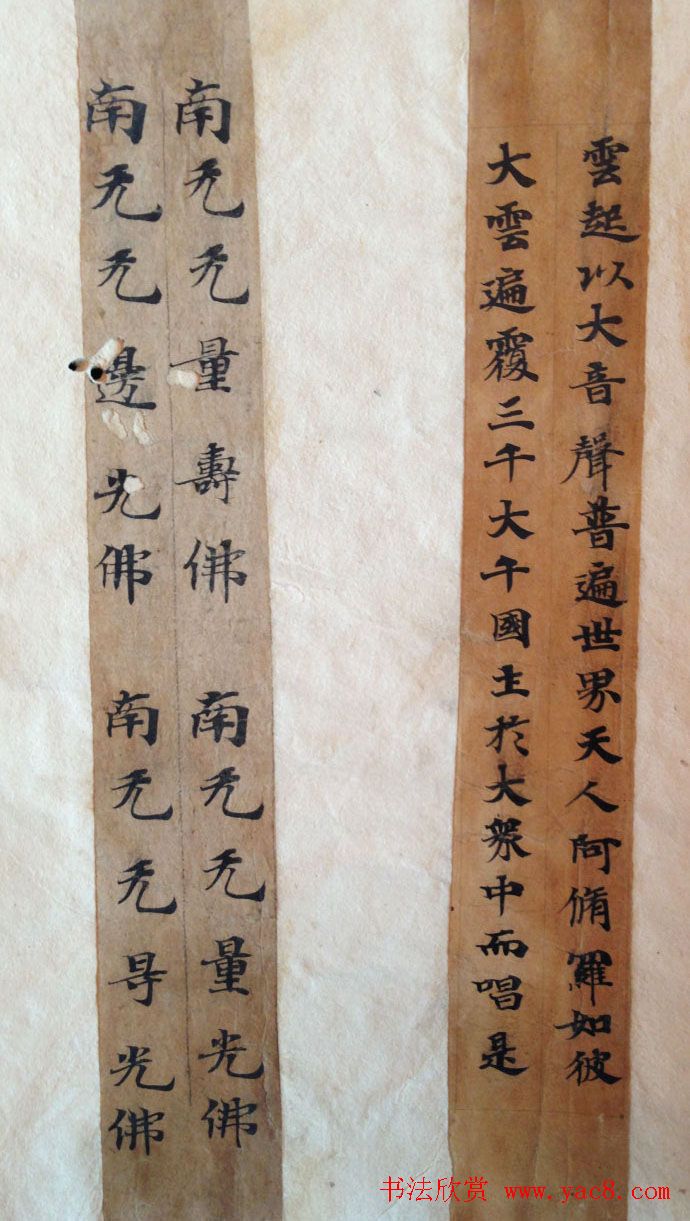 雲起以大音聲普遍世界天人阿脩羅如彼
大雲遍覆三千大千國土於大衆中而唱是
南无无量壽佛 南无无量光佛
南无无邊光佛 南无无㝵光佛
书法欣赏 www.yac8.com